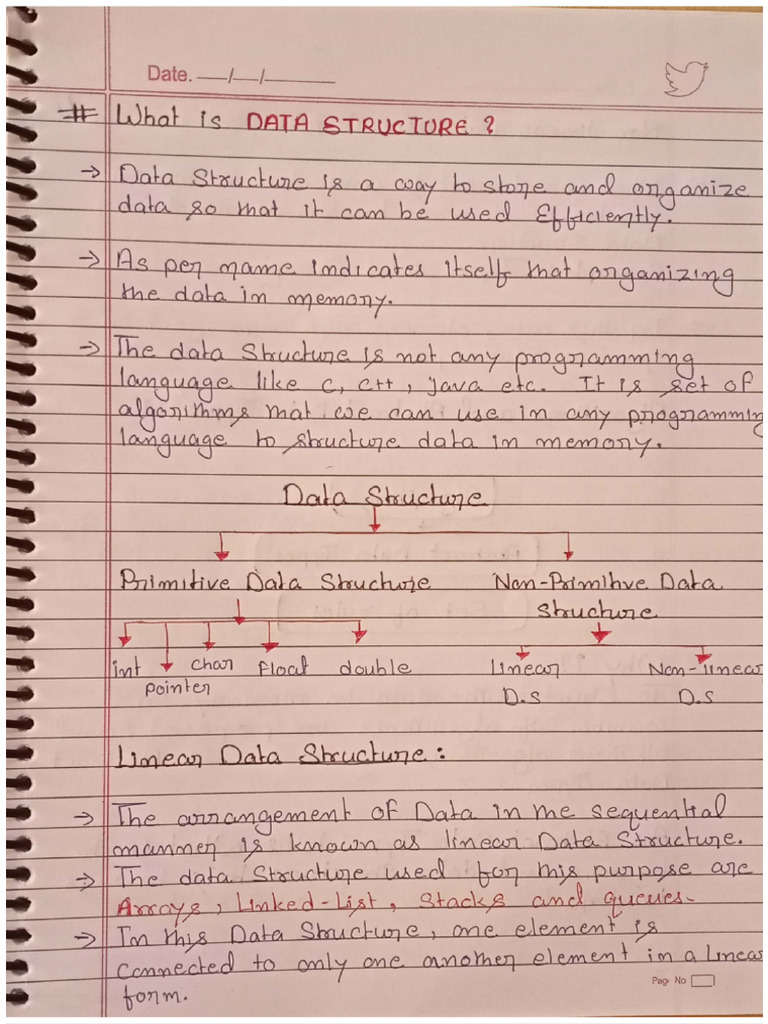 Date. __/__/______
# What is DATA STRUCTURE ?
→ Data Structure is a way to store and organize
data so that it can be used Efficiently.
→ As per name indicates itself that organizing
the data in memory.
→ The data Structure is not any programming
language like C, C++, java etc. It is set of
algorithms that we can use in any programming
language to structure data in memory.
Data Structure
Primitive Data Structure Non-Primitive Data
Structure
int pointer char float double Linear Non-linear
D.S D.S
Linear Data Structure :
→ The arrangement of Data in the sequential
manner is known as linear Data Structure.
→ The data Structure used for this purpose are
Arrays, Linked-List, Stacks and queues.
→ In this Data Structure, one element is
connected to only one another element in a linear
form.
Page No